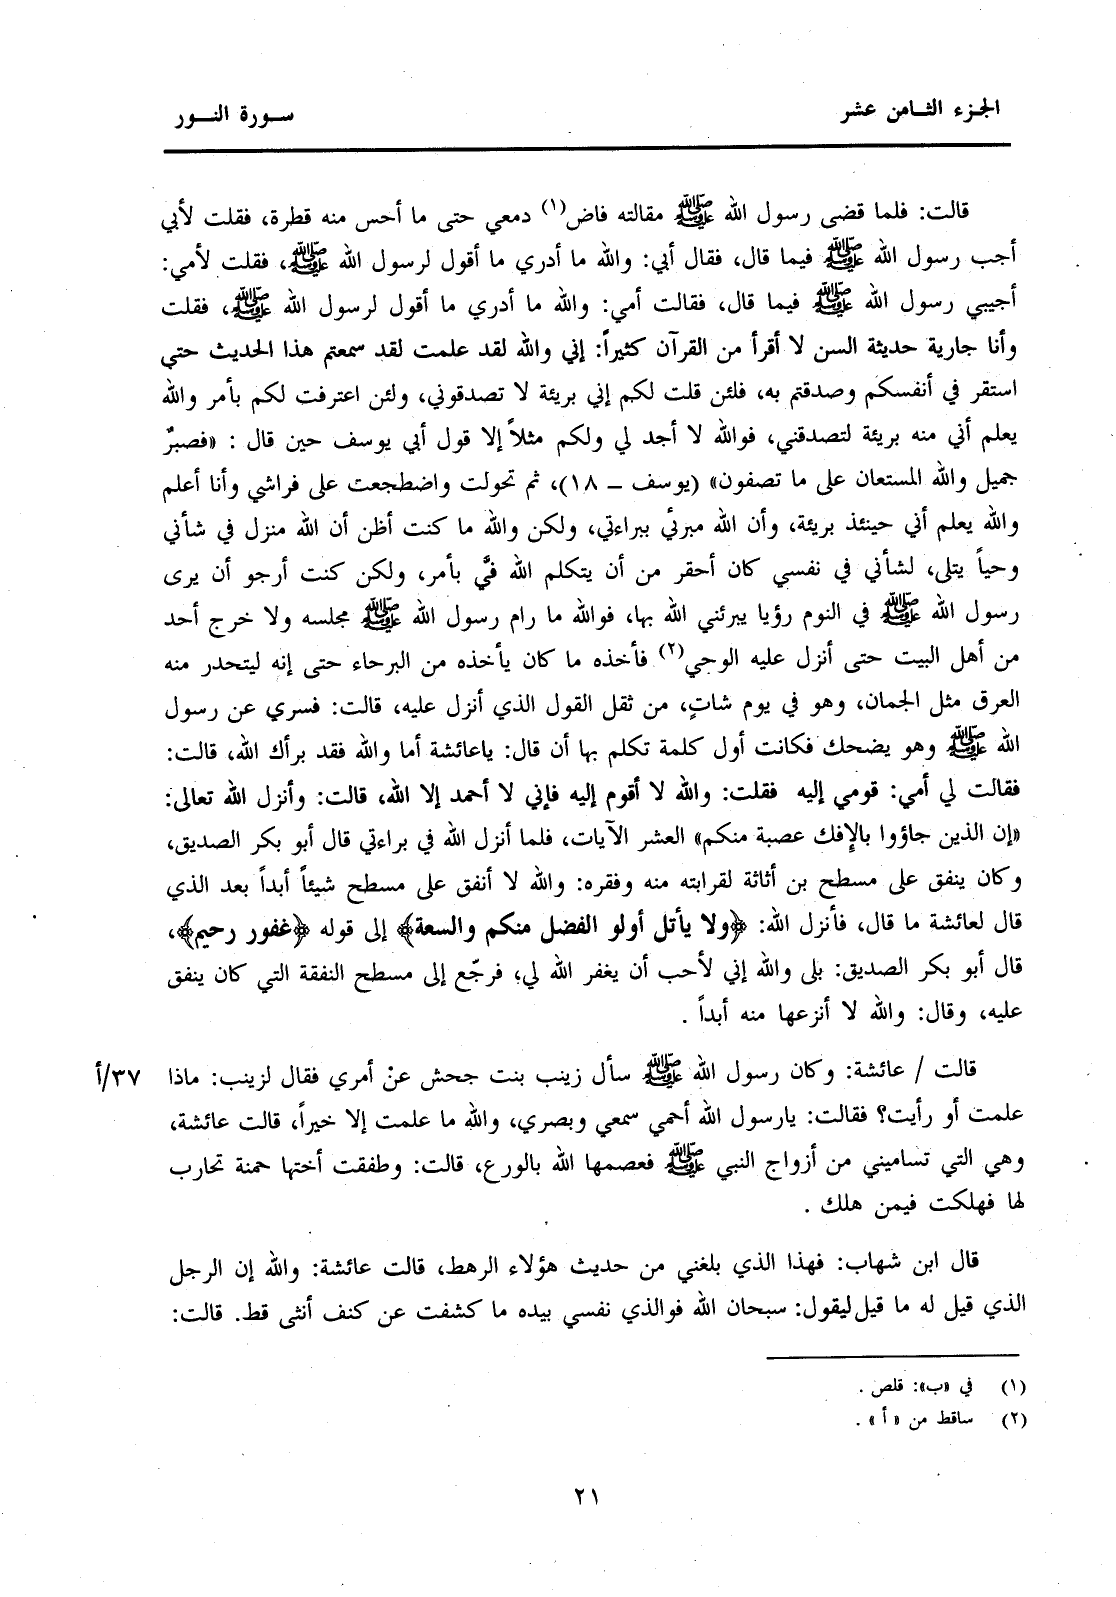 الجزء الثامن عشر
سورة النور
قالت: فلما قضى رسول الله ﷺ مقالته فاض(١) دمعي حتى ما أحس منه قطرة، فقلت لأبي
أجب رسول الله ﷺ فيما قال، فقال أبي: والله ما أدري ما أقول لرسول الله ﷺ، فقلت لأمي:
أجيبي رسول الله ﷺ فيما قال، فقالت أمي: والله ما أدري ما أقول لرسول الله ﷺ، فقلت
وأنا جارية حديثة السن لا أقرأ من القرآن كثيراً: إني والله لقد علمت لقد سمعتم هذا الحديث حتي
استقر في أنفسكم وصدقتم به، فلئن قلت لكم إني بريئة لا تصدقوني، ولئن اعترفت لكم بأمر والله
يعلم أني منه بريئة لتصدقني، فوالله لا أجد لي ولكم مثلاً إلا قول أبي يوسف حين قال : «فصبرٌ
جميل والله المستعان على ما تصفون» (يوسف ــ ١٨)، ثم تحولت واضطجعت على فراشي وأنا أعلم
والله يعلم أني حينئذ بريئة، وأن الله مبرئي ببراءتي، ولكن والله ما كنت أظن أن الله منزل في شأني
وحياً يتلى، لشأني في نفسي كان أحقر من أن يتكلم الله فيَّ بأمر، ولكن كنت أرجو أن يرى
رسول الله ﷺ في النوم رؤيا يبرئني الله بها، فوالله ما رام رسول الله ﷺ مجلسه ولا خرج أحد
من أهل البيت حتى أنزل عليه الوحي(٢) فأخذه ما كان يأخذه من البرحاء حتى إنه ليتحدر منه
العرق مثل الجمان، وهو في يوم شاتٍ، من ثقل القول الذي أنزل عليه، قالت: فسري عن رسول
الله ﷺ وهو يضحك فكانت أول كلمة تكلم بها أن قال: ياعائشة أما والله فقد برأك الله، قالت:
فقالت لي أمي: قومي إليه فقلت: والله لا أقوم إليه فإني لا أحمد إلا الله، قالت: وأنزل الله تعالى:
«إن الذين جاؤوا بالإفك عصبة منكم» العشر الآيات، فلما أنزل الله في براءتي قال أبو بكر الصديق،
وكان ينفق على مسطح بن أثاثة لقرابته منه وفقره: والله لا أنفق على مسطح شيئاً أبداً بعد الذي
قال لعائشة ما قال، فأنزل الله: ﴿ولا يأتل أولو الفضل منكم والسعة﴾ إلى قوله ﴿غفور رحيم﴾،
قال أبو بكر الصديق: بلى والله إني لأحب أن يغفر الله لي؛ فرجّع إلى مسطح النفقة التي كان ينفق
عليه، وقال: والله لا أنزعها منه أبداً .
قالت / عائشة: وكان رسول الله ﷺ سأل زينب بنت جحش عنْ أمري فقال لزينب: ماذا ٣٧/أ
علمت أو رأيت؟ فقالت: يارسول الله أحمي سمعي وبصري، واللهِ ما علمت إلا خيراً، قالت عائشة،
وهي التي تساميني من أزواج النبي ﷺ فعصمها الله بالورع، قالت: وطفقت أختها حمنة تحارب
لها فهلكت فيمن هلك .
قال ابن شهاب: فهذا الذي بلغني من حديث هؤلاء الرهط، قالت عائشة: والله إن الرجل
الذي قيل له ما قيل ليقول: سبحان الله فوالذي نفسي بيده ما كشفت عن كنف أنثى قط. قالت:
(١) في «ب»: قلص .
(٢) ساقط من «أ» .
٢١